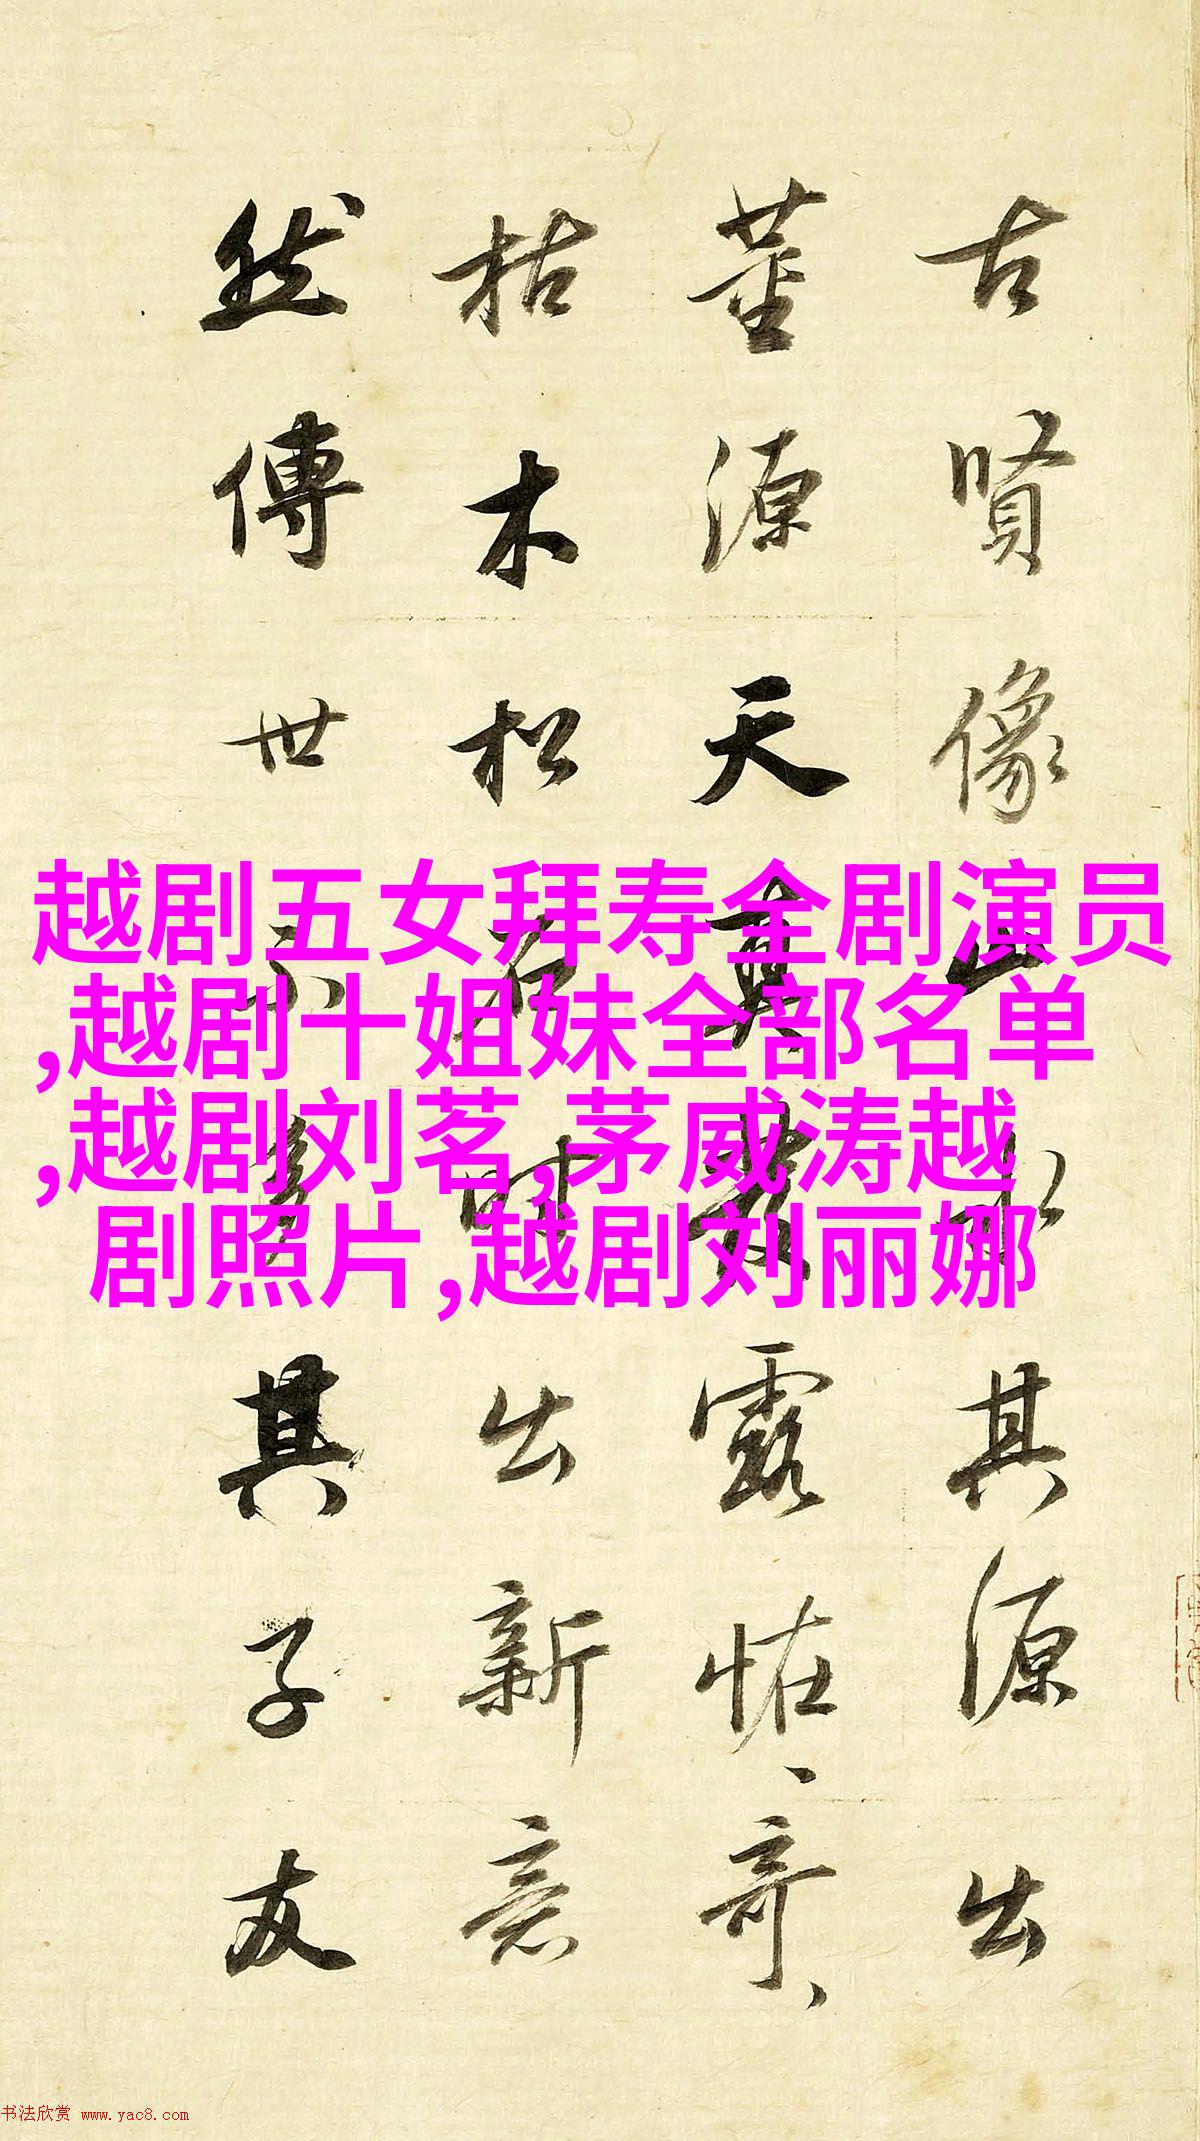 古賢像山水其源出
董源天真發露恠奇
枯木松石時出新意
然傳世不多其子友
越剧五女拜寿全剧演员
,越剧十姐妹全部名单
,越剧刘茗,茅威涛越
剧照片,越剧刘丽娜
书法欣赏 www.yac8.com